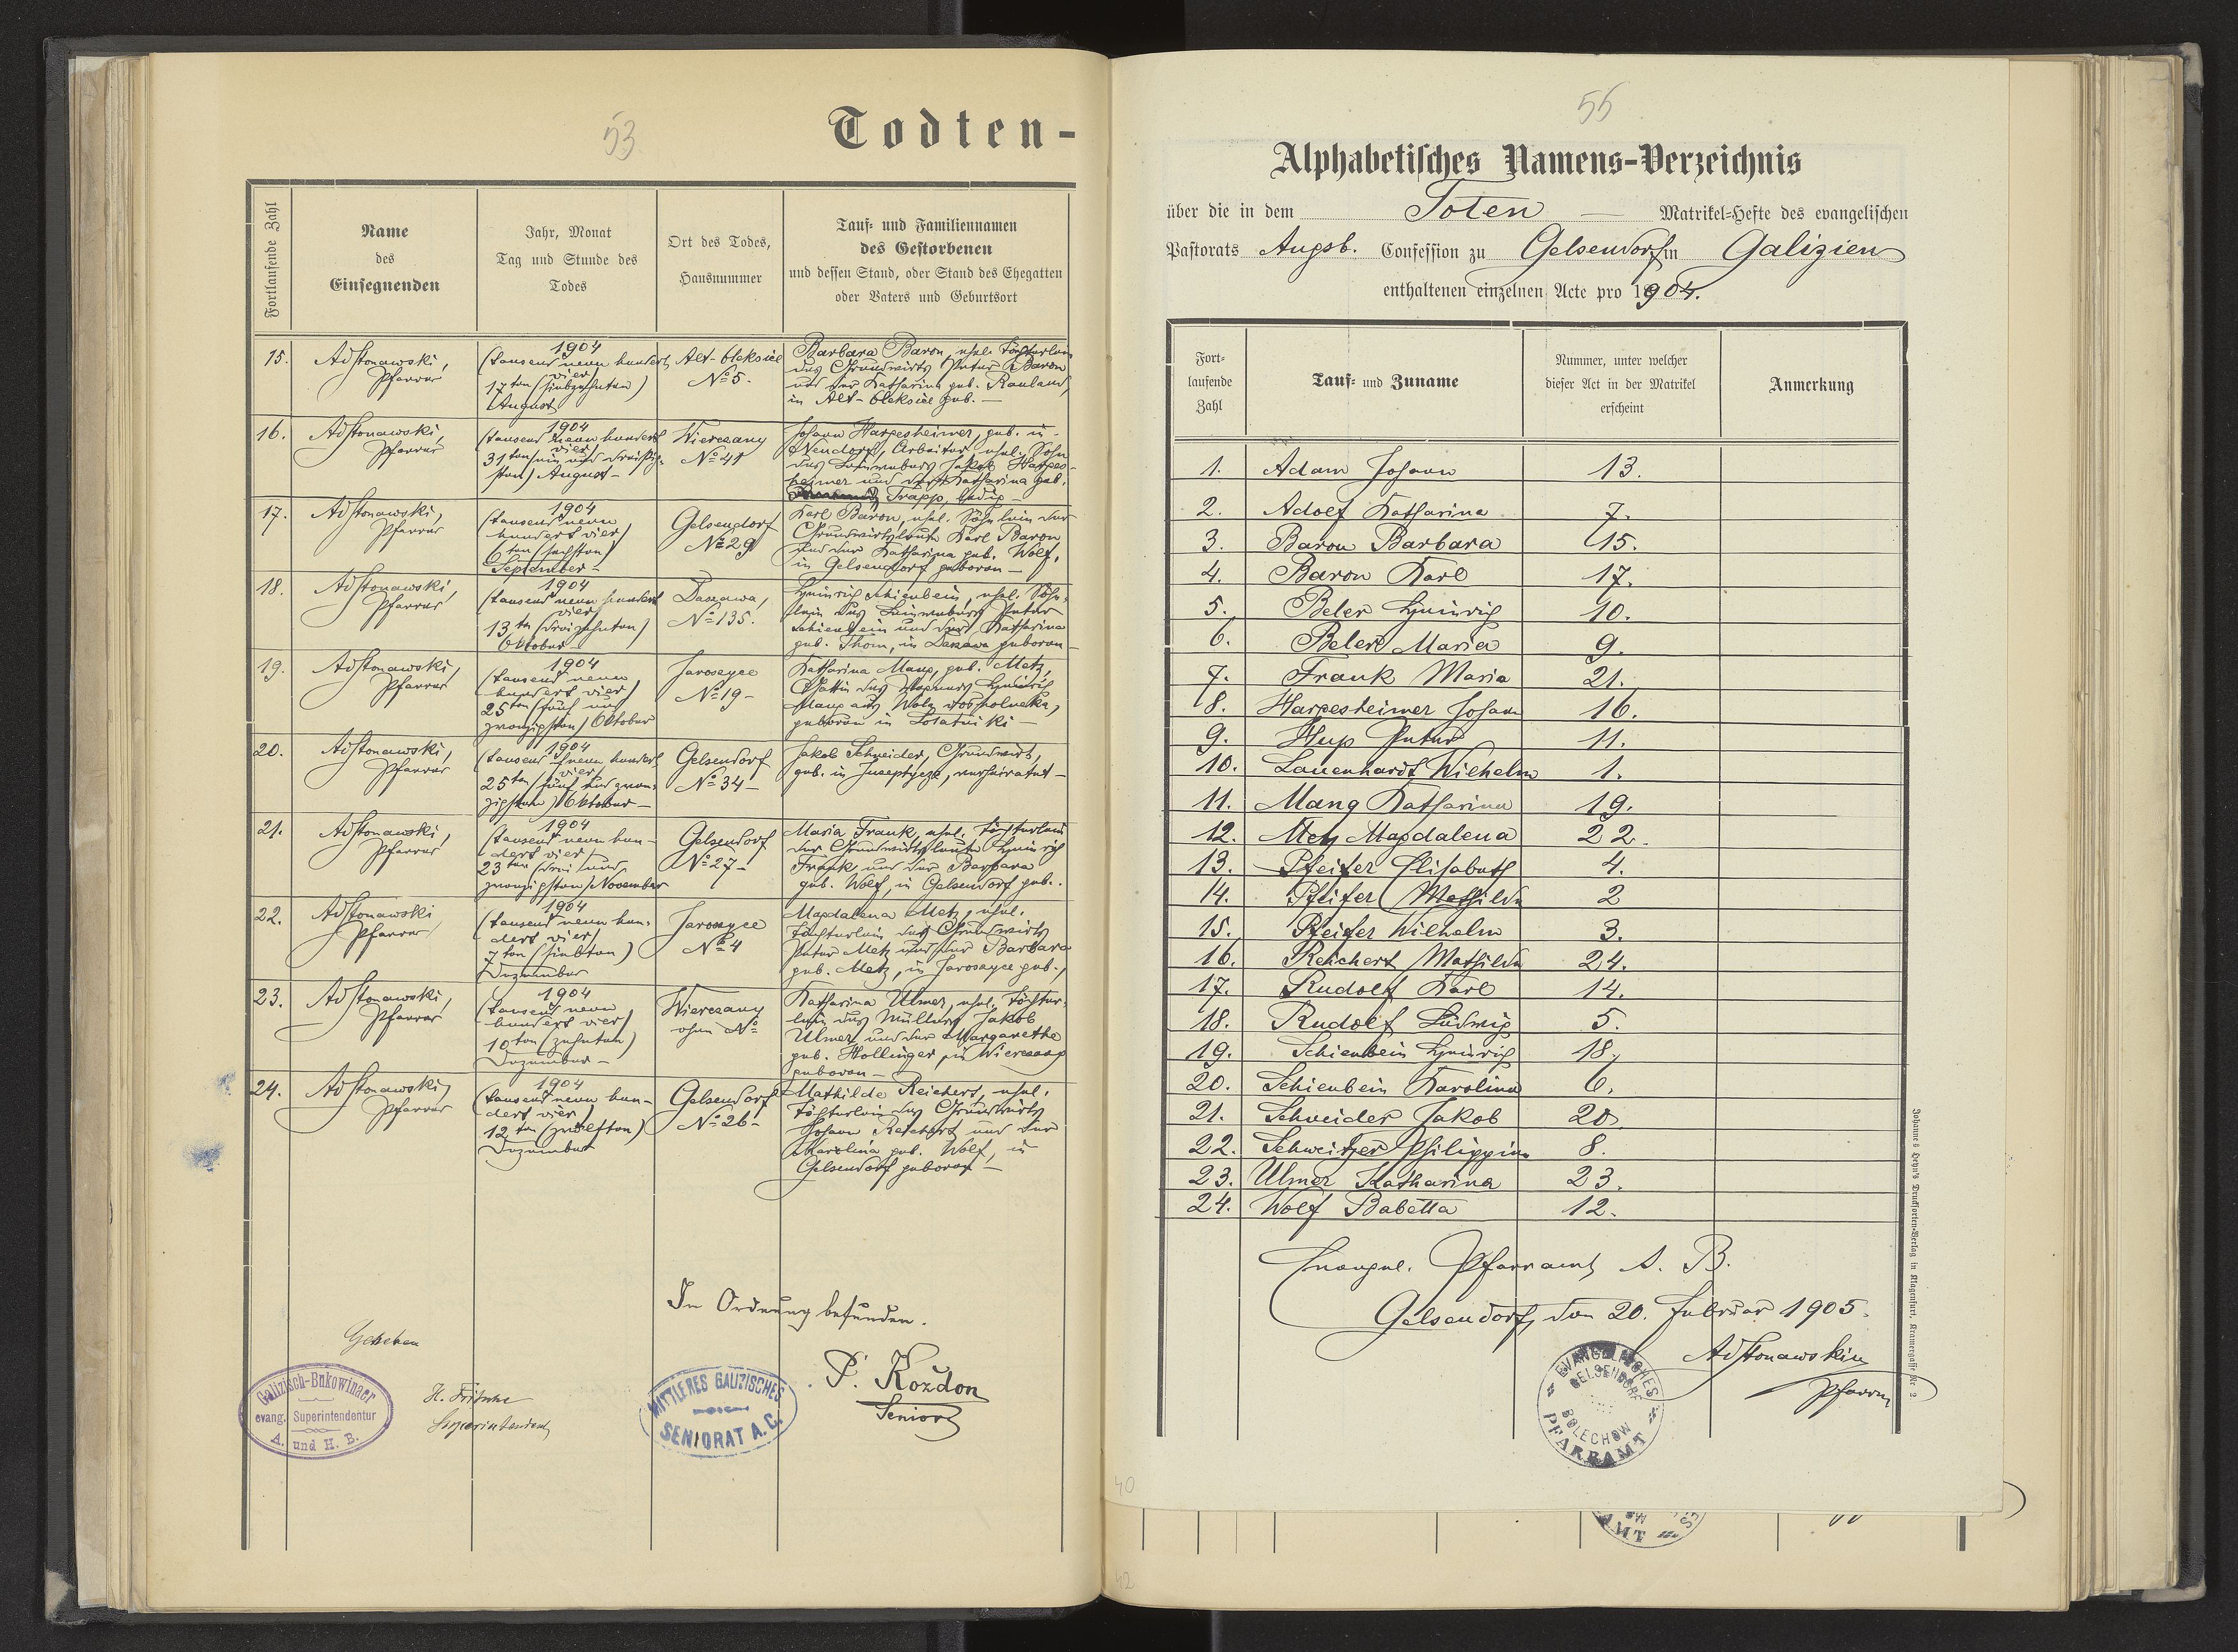 53
Todten-
Fortlaufende Zahl
Name
des
Einsegnenden
Jahr, Monat
Tag und Stunde des
Todes
Ort des Todes,
Hausnummer
Tauf- und Familiennamen
des Gestorbenen
und dessen Stand, oder Stand des Ehegatten
oder Vaters und Geburtsort
15.
Ad Stonawski,
Pfarrer
1904
(tausend neun hundert
vier)
17ten (siebzehnten)
August
Alt-Oleksice
No 5.
Barbara Baron, ehel. Töchterlein
des Grundwirts Peter Baron
und der Katharina geb. Rauland,
in Alt-Oleksice geb. —
16.
Ad Stonawski,
Pfarrer
1904
(tausend neun hundert
vier)
31ten (ein und dreißig-
sten) August —
Wierczany
No 41
Johann Harpesheimer, geb. in
Neudorf, Arbeiter, ehel. Sohn
des Leinwebers Jakob Harpes-
heimer und der Katharina geb.
Trapp, ledig —
17.
Ad Stonawski,
Pfarrer
1904
(tausend neun
hundert vier)
6ten (sechsten)
September —
Gelsendorf
No 29
Karl Baron, ehel. Söhnlein der
Grundwirtsleute Karl Baron
und der Katharina geb. Wolf,
in Gelsendorf geboren —
18.
Ad Stonawski,
Pfarrer
1904
(tausend neun hundert
vier)
13ten (dreizehnten)
Oktober —
Daszawa,
No 135.
Heinrich Schienbein, ehel. Söhn-
lein des Leinwebers Peter
Schienbein und der Katharina
geb. Thom, in Daszawa geboren —
19.
Ad Stonawski,
Pfarrer
1904
(tausend neun
hundert vier)
25ten (fünf und
zwanzigsten) Oktober
Jaroszyce
No 19 —
Katharina Mang, geb. Metz,
Gattin des Wagners Heinrich
Mang aus Wola
geboren in
20.
Ad Stonawski,
Pfarrer
1904
(tausend neun hundert
vier)
25ten (fünf und zwan-
zigsten) Oktober —
Gelsendorf
No 34 —
Jakob Schneider, Grundwirt,
geb. in Josephsberg, verheiratet —
21.
Ad Stonawski,
Pfarrer
1904
(tausend neun hun-
dert vier)
23ten (drei und
zwanzigsten) November
Gelsendorf
No 27 —
Maria Frank, ehel. Töchterlein
der Grundwirtsleute Heinrich
Frank und der Barbara
geb. Wolf, in Gelsendorf geb.
22.
Ad Stonawski
Pfarrer
1904
(tausend neun hun-
dert vier)
7ten (siebten)
Dezember
Jaroszyce
No 4
Magdalena Metz, ehel.
Töchterlein des Grundwirts
Peter Metz und der Barbara
geb. Metz, in Jaroszyce geb.,
23.
Ad Stonawski,
Pfarrer
1904
(tausend neun
hundert vier)
10ten (zehnten)
Dezember —
Wierczany
ohne No
Katharina Ulmer, ehel. Töchter-
lein des Müllers Jakob
Ulmer und der Margarethe
geb. Hollinger, in Wierczany
geboren —
24.
Ad Stonawski,
Pfarrer
1904
(tausend neun hun-
dert vier)
12ten (zwölften)
Dezember
Gelsendorf
No 26 —
Mathilde Reichert, ehel.
Töchterlein des Grundwirts
Johann Reichert und der
Karolina geb. Wolf, in
Gelsendorf geboren —
In Ordnung befunden.
Gesehen
Galizisch-Bukowinaer
evang. Superintendentur
A. und H. B.
H. Fritsche
Superintendent
MITTLERES GALIZISCHES
SENIORAT A.C.
P. Kozdon
Senior
55
Alphabetisches Namens-Verzeichnis
über die in dem Toten — Matrikel-Hefte des evangelischen
Pastorats Augsb. Confession zu Gelsendorf in Galizien
enthaltenen einzelnen Acte pro 1904.
Fort-
laufende
Zahl
Tauf- und Zuname
Nummer, unter welcher
dieser Act in der Matrikel
erscheint
Anmerkung
1. Adam Johann 13.
2. Adolf Katharina 7.
3. Baron Barbara 15.
4. Baron Karl 17.
5. Beler Heinrich 10.
6. Beler Maria 9.
7. Frank Maria 21.
8. Harpesheimer Johann 16.
9. Hup Peter 11.
10. Lauenhardt Wilhelm 1.
11. Mang Katharina 19.
12. Metz Magdalena 22.
13. Pfeifer Elisabeth 4.
14. Pfeifer Mathilde 2
15. Pfeifer Wilhelm 3.
16. Reichert Mathilde 24.
17. Rudolf Karl 14.
18. Rudolf Ludwig 5.
19. Schienbein Heinrich 18.
20. Schienbein Karolina 6.
21. Schneider Jakob 20.
22. Schweitzer Philippina 8.
23. Ulmer Katharina 23.
24. Wolf Babetta 12.
Evangel. Pfarramt A. B.
Gelsendorf, den 20. Februar 1905.
Ad Stonawski
Pfarrer
EVANGELISCHES
GELSENDORF
BOLECHOW
PFARRAMT
Johannes Heyn's Drucksorten-Verlag in Klagenfurt, Kramergasse Nr. 2
40
42